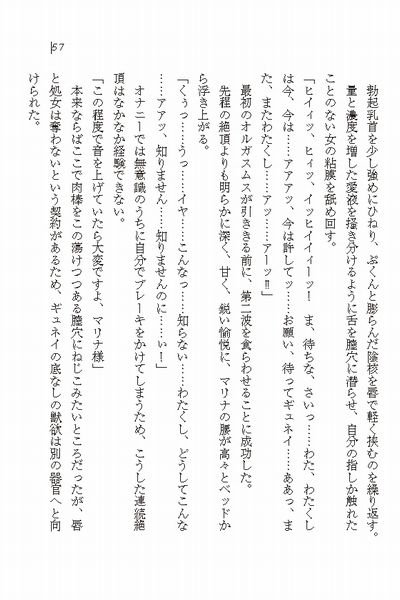 57
勃起乳首を少し強めにひねり、ぷくんと膨らんだ陰核を唇で軽く挟むのを繰り返す。
量と濃度を増した愛液を掻き分けるように舌を膣穴に潜らせ、自分の指しか触れた
ことのない女の粘膜を舐め回す。
「ヒイィッ、ヒィッ、イッヒイイィーッ! ま、待ちな、さいっ……わた、わたくし
は今、今は……アアアッ、今は許してッ……お願い、待ってギュネイ……ああっ、ま
た、またわたくし……アッ……アーッ!!」
最初のオルガスムスが引ききる前に、第二波を食らわせることに成功した。
先程の絶頂よりも明らかに深く、甘く、鋭い愉悦に、マリナの腰が高々とベッドか
ら浮き上がる。
「くぅっ……うっ……イヤ……こんなっ……知らない……わたくし、どうしてこんな
……アアッ、知りません……知りませんのに……ぃ!」
オナニーでは無意識のうちに自分でブレーキをかけてしまうため、こうした連続絶
頂はなかなか経験できない。
「この程度で音を上げていたら大変ですよ、マリナ様」
本来ならばここで肉棒をこの蕩けつつある膣穴にねじこみたいところだったが、唇
と処女は奪わないという契約があるため、ギュネイの底なしの獣欲は別の器官へと向
けられた。